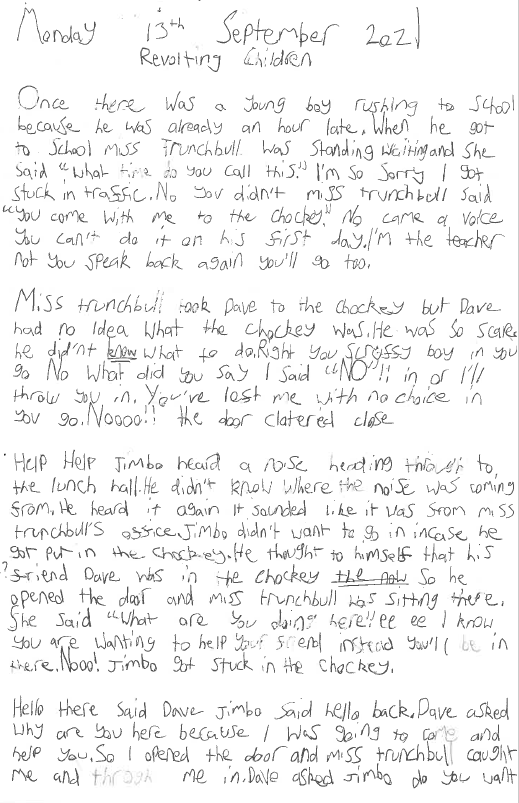 Monday 13th September 2021
Revolting Children
Once there was a young boy rushing to School
because he was already an hour late. When he got
to School Miss Trunchbull was Standing Waiting and She
Said "What time do you call this." I'm so Sorry I got
Stuck in traffic. No You didn't miss trunchbull Said
"You come With me to the chockey." No came a voice
You can't do it on his first day. I'M the teacher
not you Speak back again You'll go too.
Miss trunchbull took Dave to the chockey but Dave
had no Idea What the Chockey was. He was So Scared
he did'nt know What to do. Right You Scrassy boy in you
go No What did you Say I Said "NO"!! in or I'll
throw you in. You've lest me with no choice in
You go. Noooo!! the door clatered close
Help Help Jimbo heard a noise heading through to,
the lunch hall. He didn't know Where the noise was coming
from. He heard it again it Sounded like it was from miss
trunchbull's office. Jimbo didn't want to go in incase he
got put in the Chockey. He thought to himself that his
? friend Dave was in the Chockey the now So he
opened the door and miss trunchbull was Sitting there.
She Said "What are You doing here"! ee ee I know
You are Wanting to help Your friend instead You'll be in
there. Nooo! Jimbo got Stuck in the Chockey.
Hello there Said Dave Jimbo Said hello back. Dave asked
Why are You here because I was going to come and
help You. So I opened the door and miss trunchbull caught
Me and through me in. Dave asked Jimbo do you want